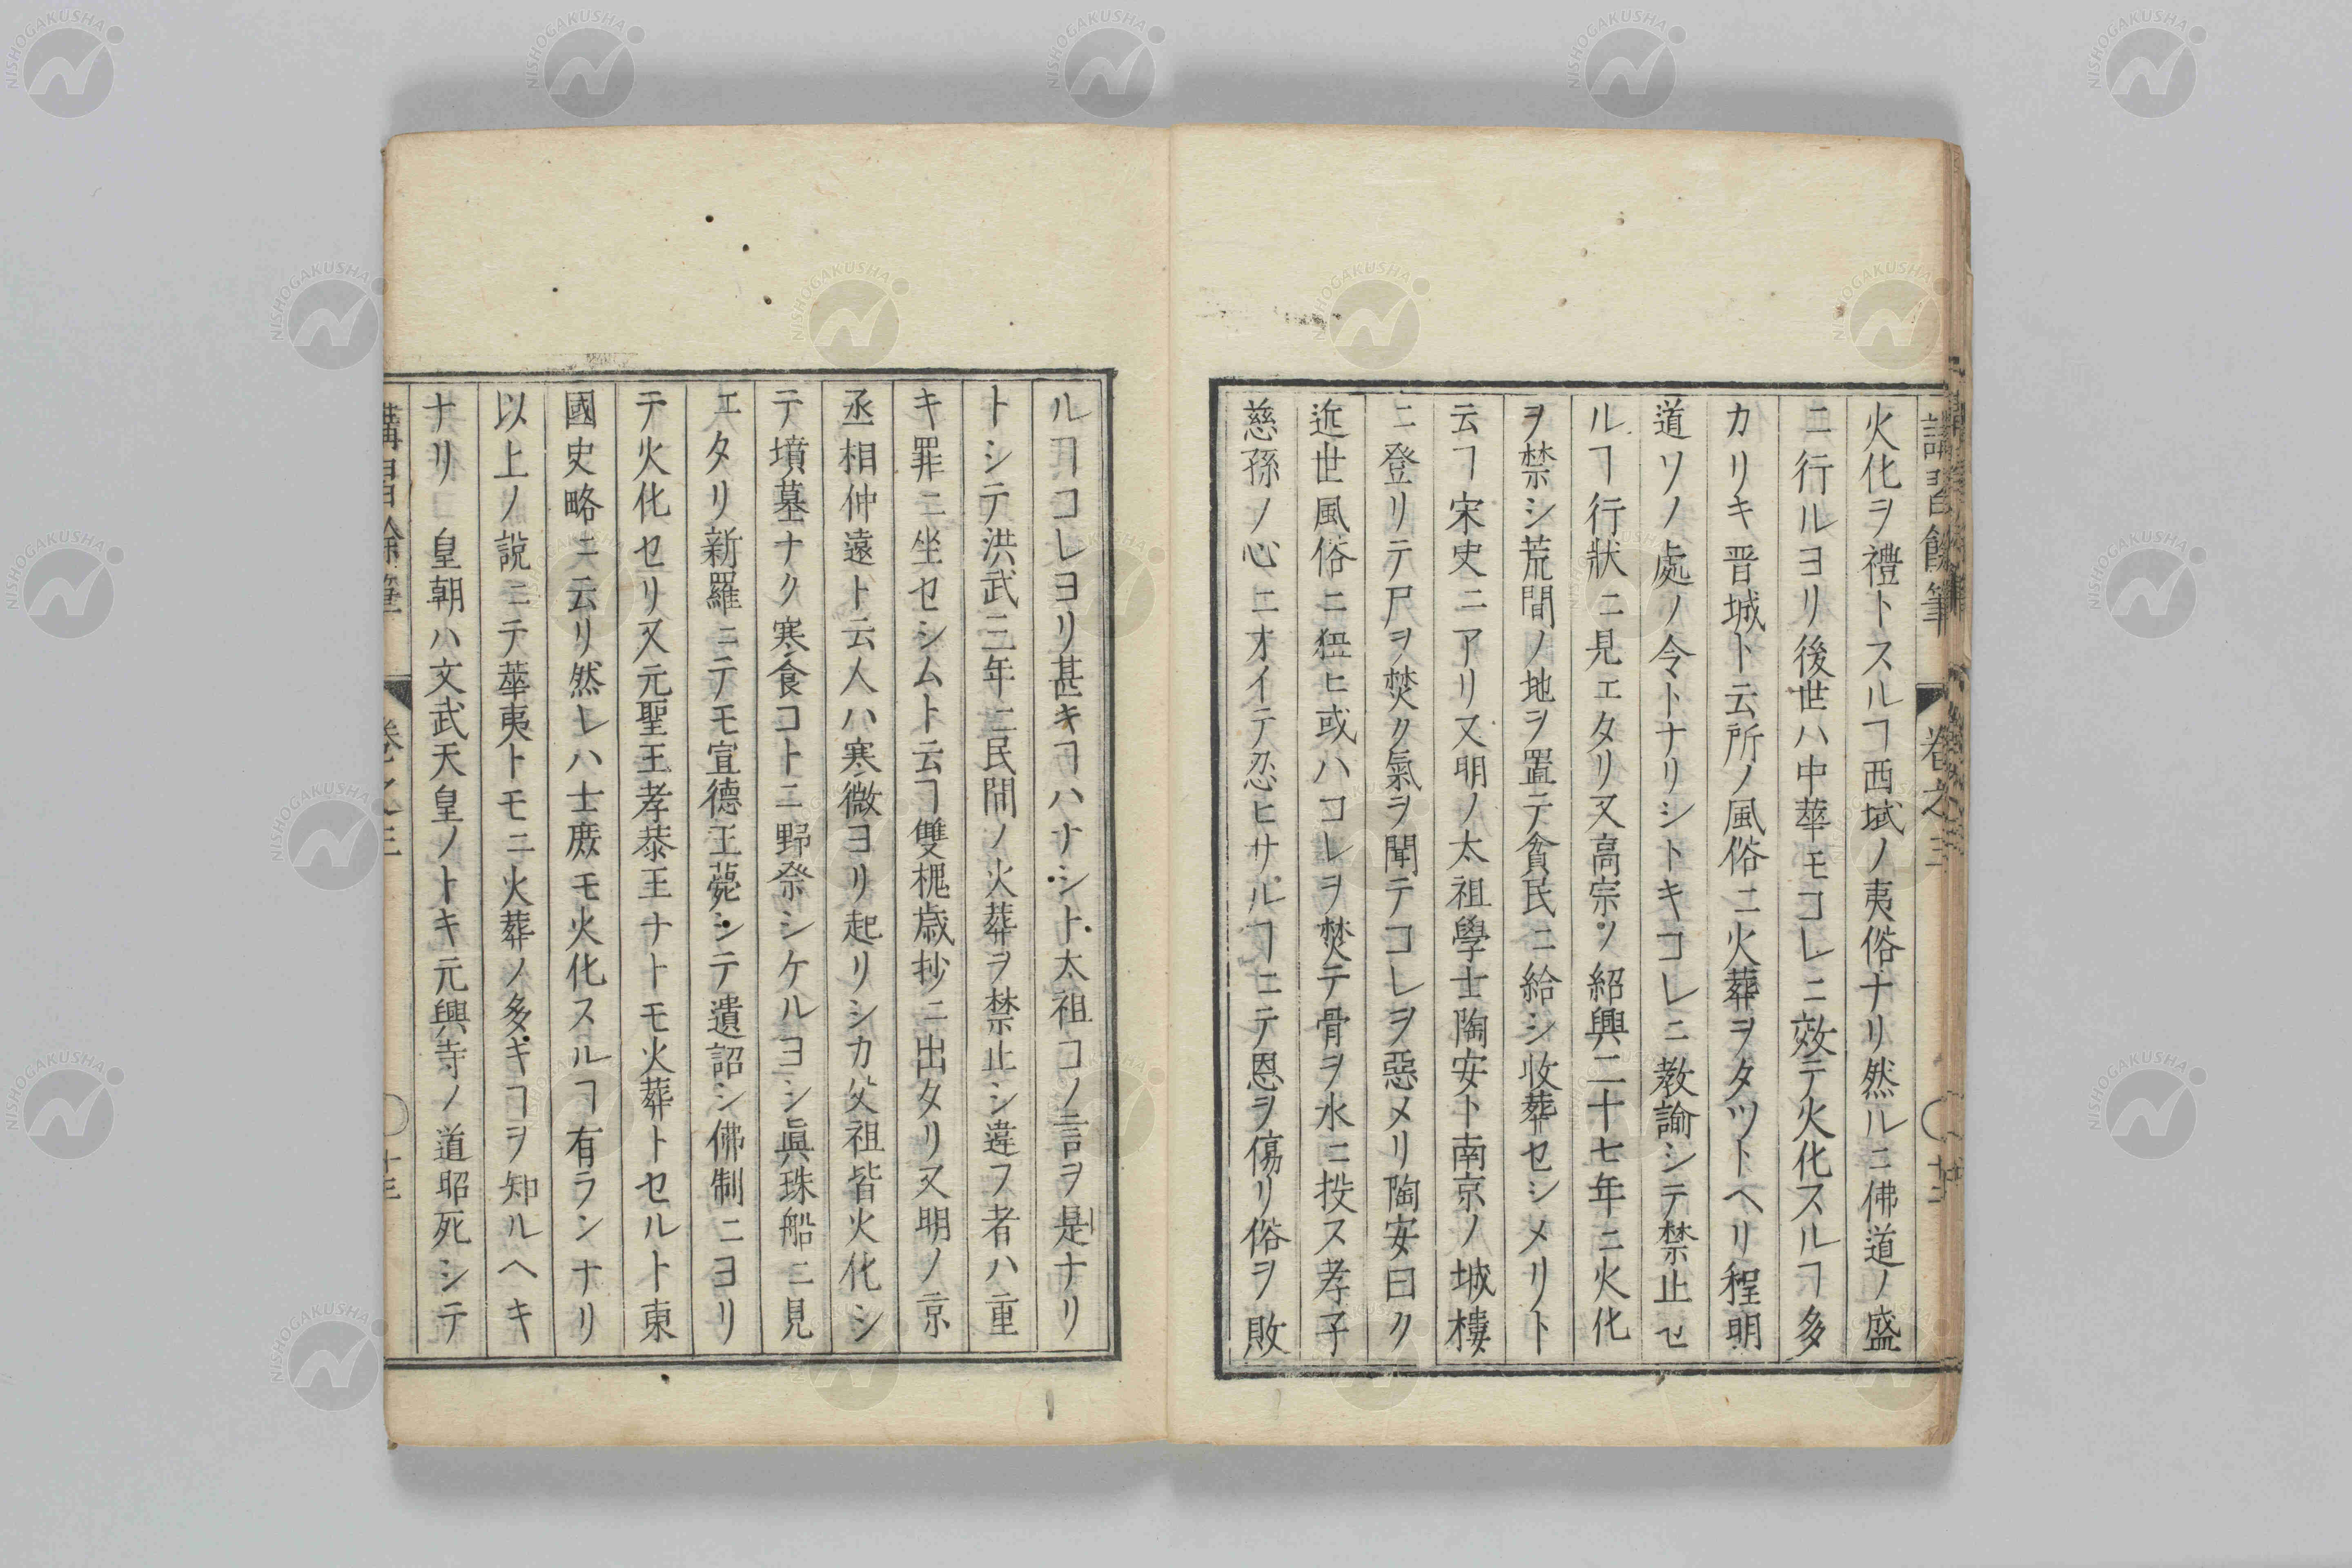 講習餘筆 卷之三
火化ヲ禮トスルヿ西域ノ夷俗ナリ然ルニ佛道ノ盛
ニ行ルヨリ後世ハ中華モコレニ效テ火化スルヿ多
カリキ晋城ト云所ノ風俗ニ火葬ヲタツトヘリ程明
道ソノ處ノ令トナリシトキコレニ教諭シテ禁止セ
ルヿ行狀ニ見エタリ又高宗ノ紹興二十七年ニ火化
ヲ禁シ荒間ノ地ヲ置テ貧民ニ給シ收葬セシメリト
云ヿ宋史ニアリ又明ノ太祖學士陶安ト南京ノ城樓
ニ登リテ尸ヲ焚ク氣ヲ聞テコレヲ惡メリ陶安曰ク
近世風俗ニ狃ヒ或ハコレヲ焚テ骨ヲ水ニ投ス孝子
慈孫ノ心ニオイテ忍ヒサルヿニテ恩ヲ傷リ俗ヲ敗
ルヿコレヨリ甚キヿハナシト太祖コノ言ヲ是ナリ
トシテ洪武三年ニ民間ノ火葬ヲ禁止シ違フ者ハ重
キ罪ニ坐セシムト云ヿ雙槐歳抄ニ出タリ又明ノ京
丞相仲遠ト云人ハ寒微ヨリ起リシカ父祖皆火化シ
テ墳墓ナク寒食コトニ野祭シケルヨシ眞珠船ニ見
エタリ新羅ニテモ宣德王薨シテ遺詔シ佛制ニヨリ
テ火化セリ又元聖王孝恭王ナトモ火葬トセルト東
國史略ニ云リ然レハ士庶モ火化スルヿ有ランナリ
以上ノ説ニテ華夷トモニ火葬ノ多キヿヲ知ルヘキ
ナリ 皇朝ハ文武天皇ノトキ元興寺ノ道昭死シテ
講習餘筆 卷之三
NISHOGAKUSHA